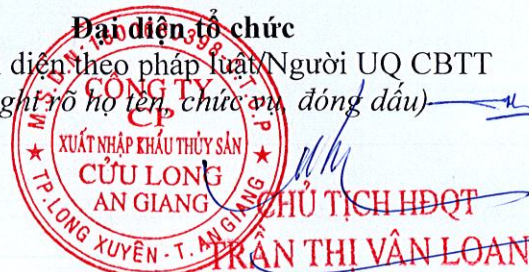 Đại diện tổ chức
diện theo pháp luật/Người UQ CBTT
ghi rõ họ tên, chức vụ, đóng dấu)
CÔNG TY
CP
XUẤT NHẬP KHẨU THỦY SẢN
CỬU LONG
AN GIANG
TP. LONG XUYÊN - T. AN GIANG
CHỦ TỊCH HĐQT
TRẦN THỊ VÂN LOAN